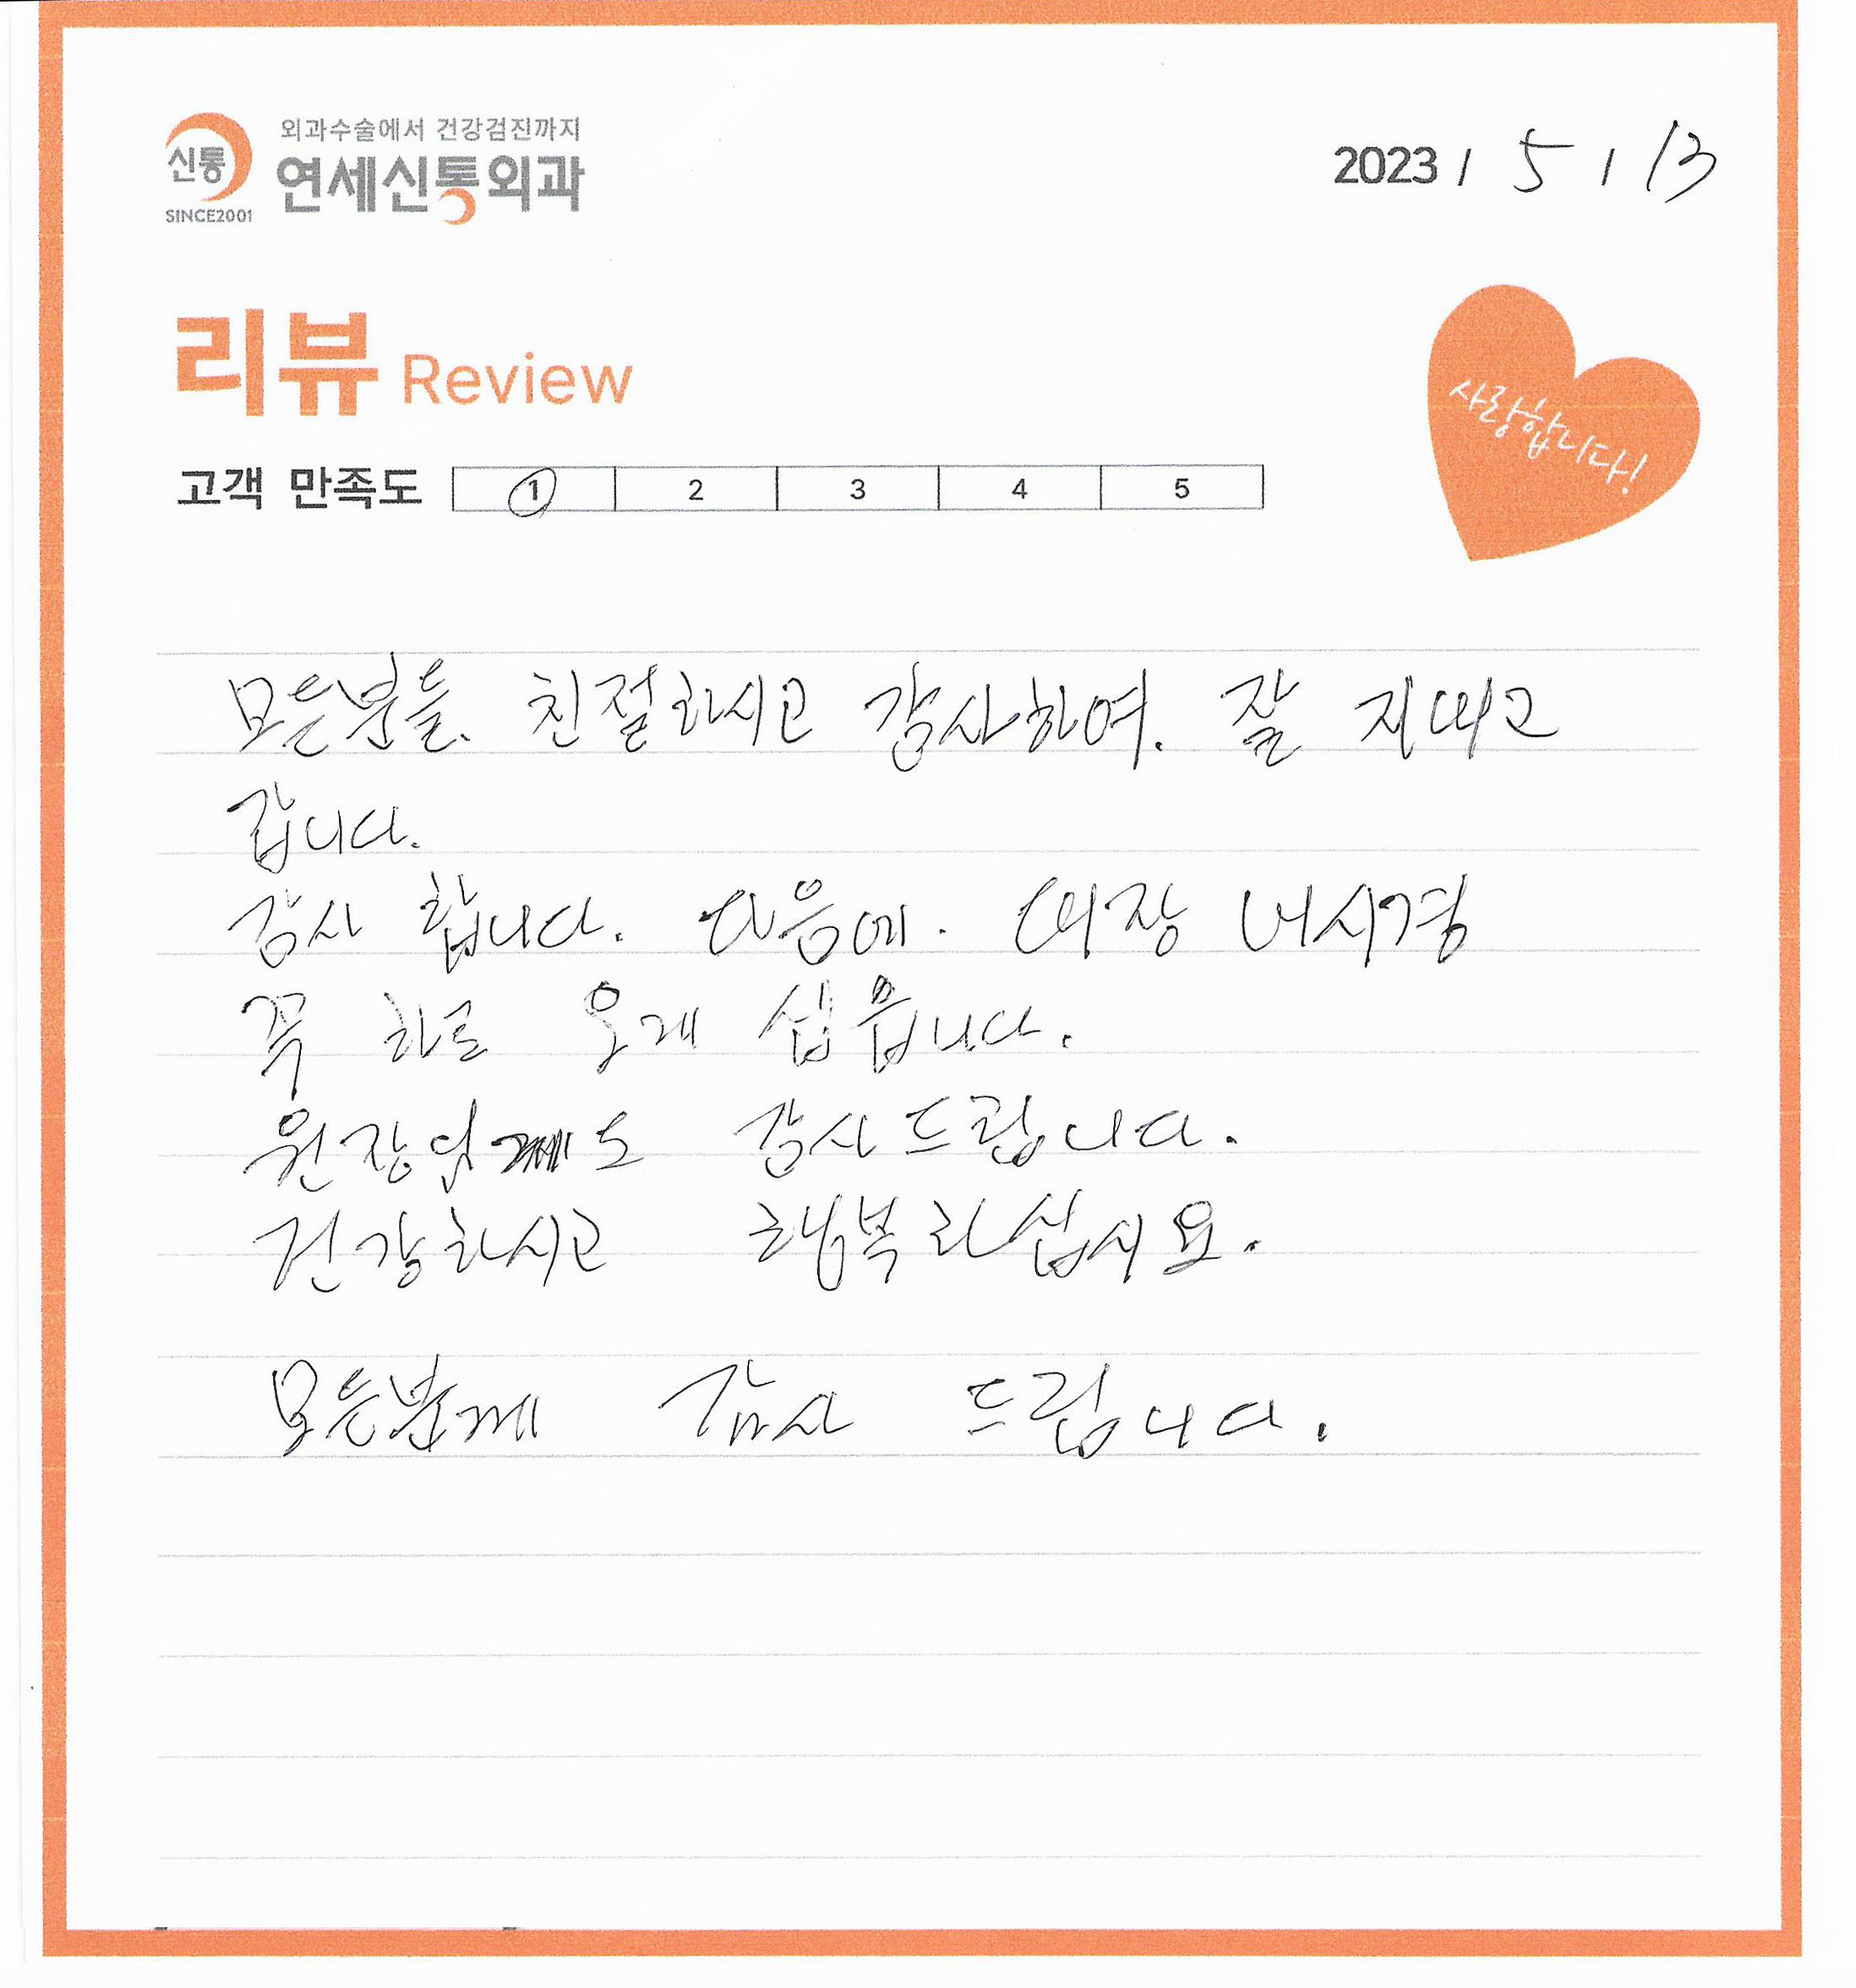 외과수술에서 건강검진까지
신통 연세신통외과
SINCE2001
2023 / 5 / 13
리뷰 Review
사랑합니다!
고객 만족도 1 2 3 4 5
모든분들. 친절하시고 감사하여. 잘 지내고
갑니다.
감사 합니다. 다음에. 대장 내시경
꼭 하로 오게 십읍니다.
원장님께도 감사드립니다.
건강하시고 행복하십시요.
모든분께 감사 드립니다.